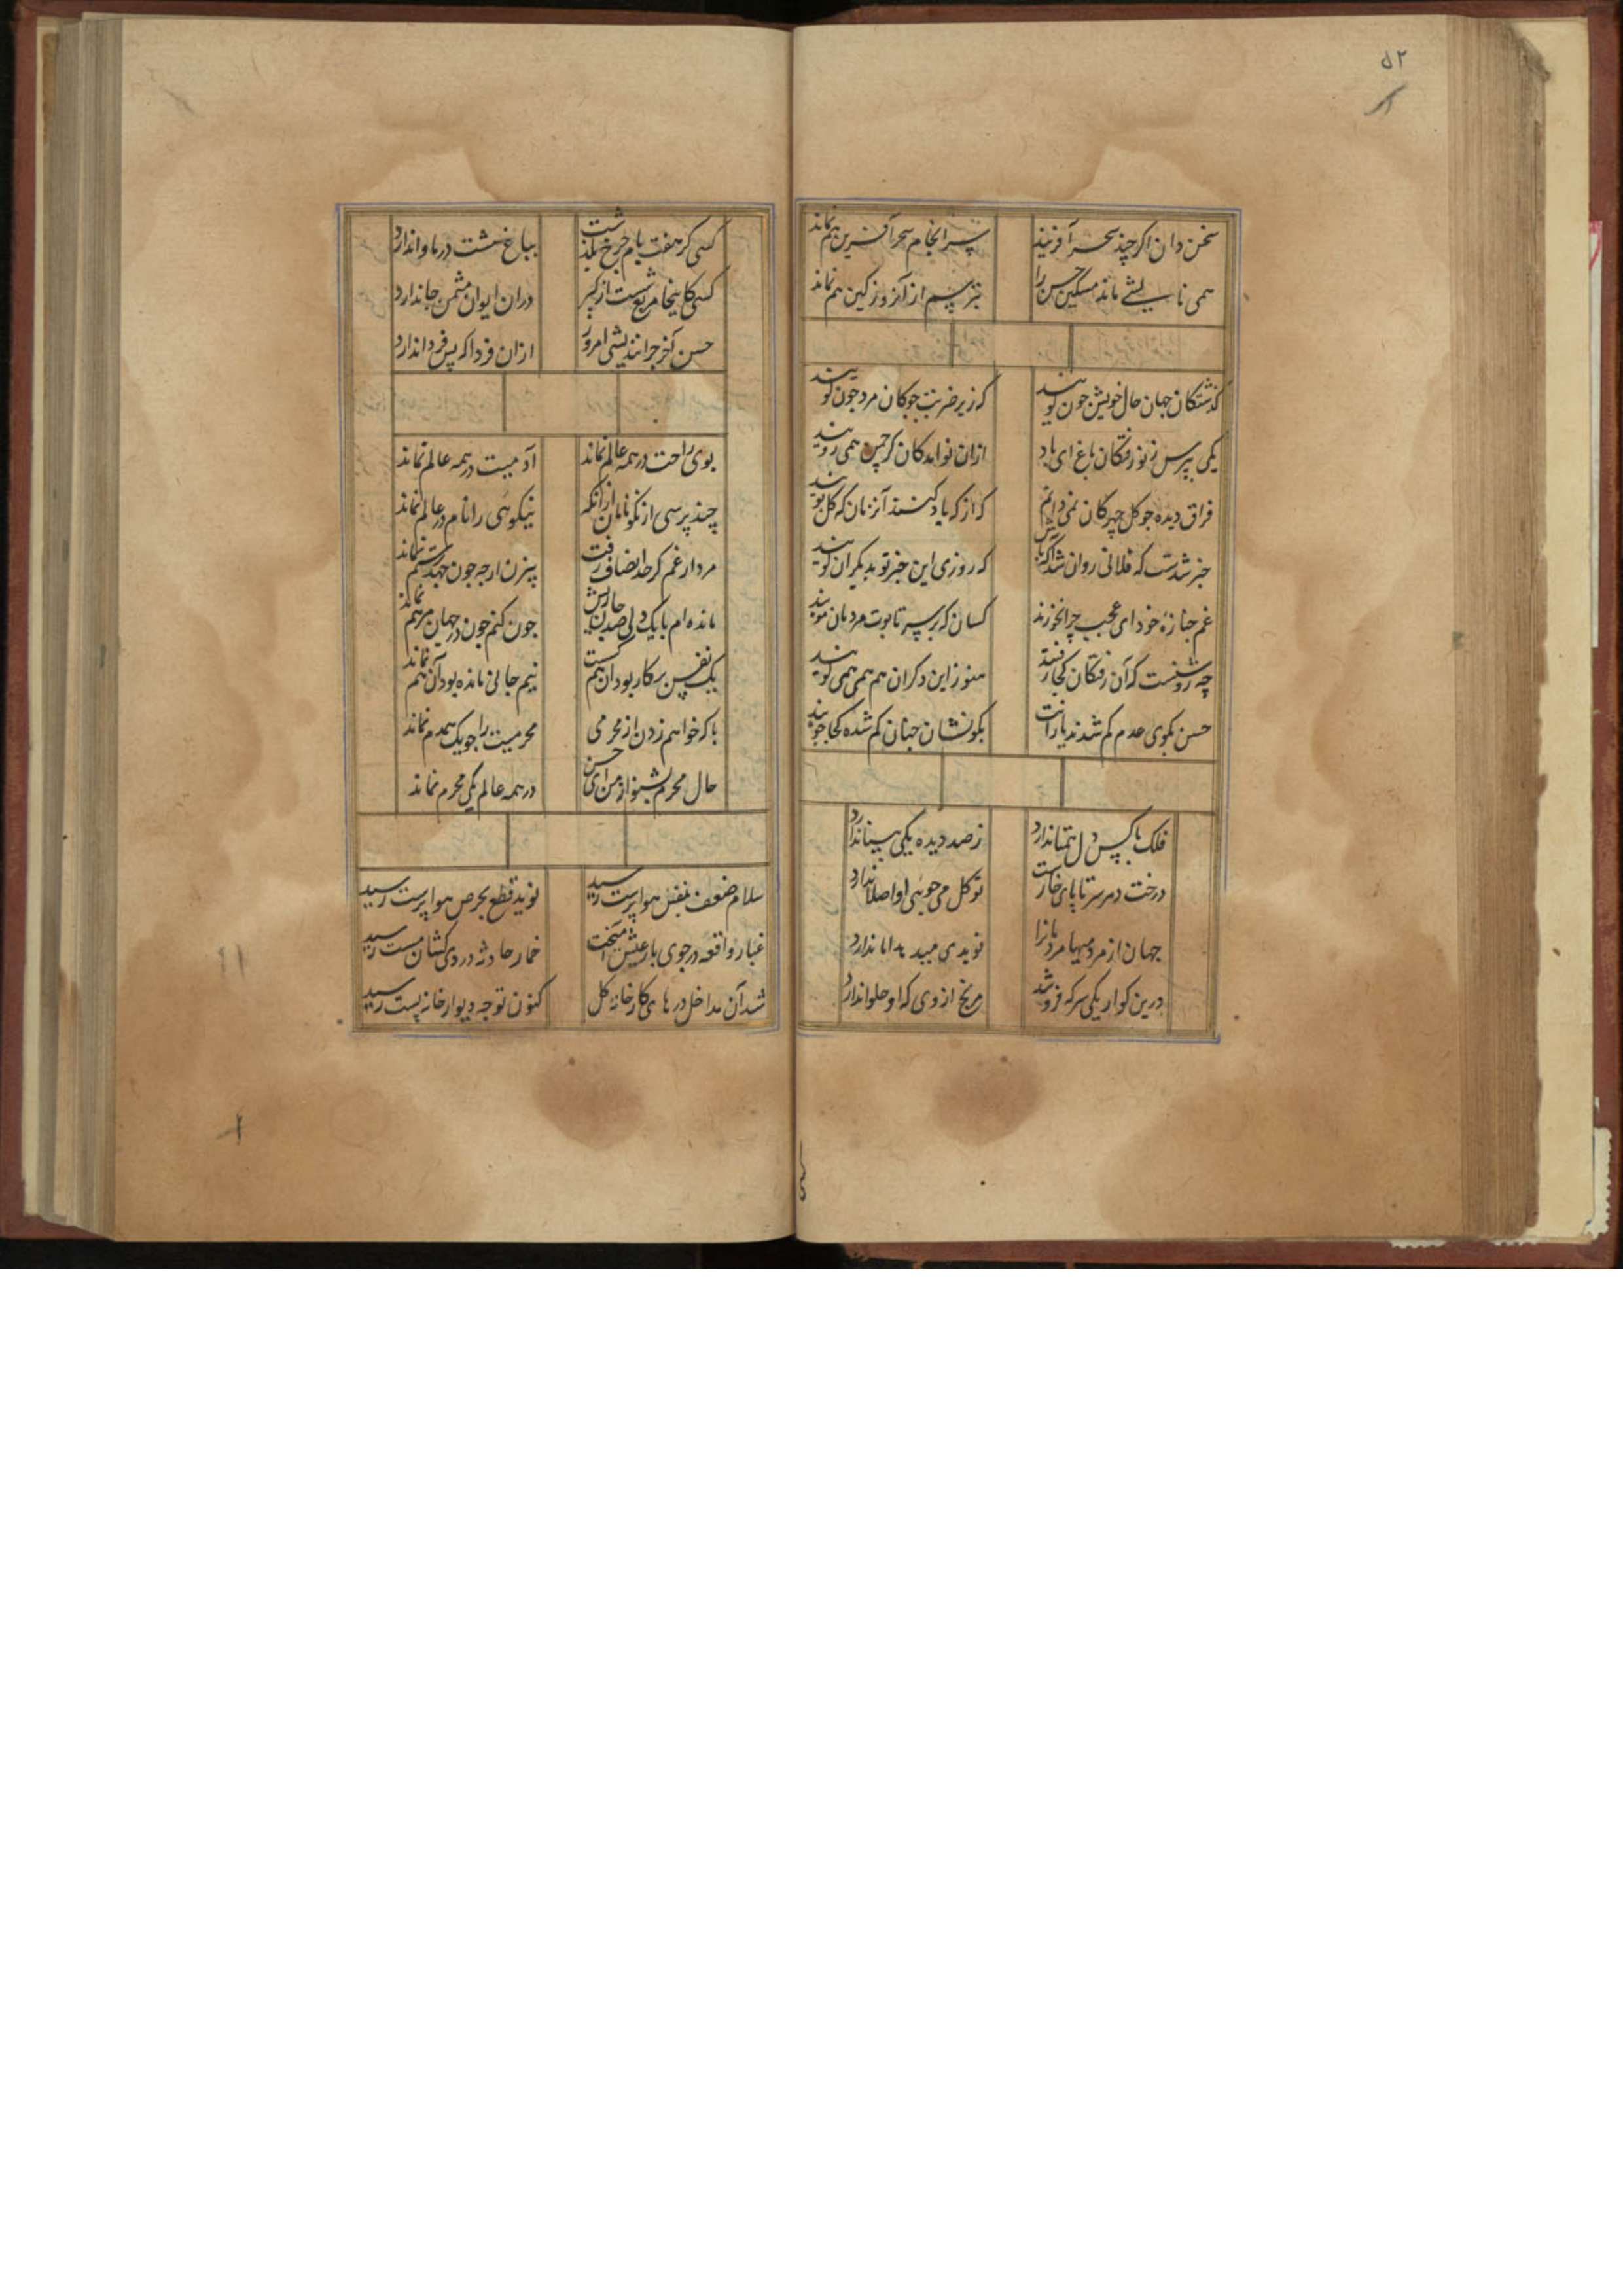 ۵۲
سخن دان اگر چند سحر آفریند
سرانجام سحر آفرین هم نماند
همی نالشی ماند مسکین حسن را
بترسم از آن روز کین هم نماند
گذشتگان جهان حال خویش چون گویند
که زیر ضربت چوگان مرد چون گویند
یکی بپرس ز نو رفتگان باغ ای باد
ازان نوامدگان کز چمن همی رویند
فراق دیده چو گل چهرگان نمی دانم
که از که یاد کنند آن زمان که گل بویند
خبر شدست که فلانی روان شد آگه باش
که روزی این خبر تو بدیگران گویند
غم جنازه خود ای عجب چرا نخورند
کسان که بر سر تابوت مردمان مویند
چه روشنست که آن رفتگان کجا رفتند
هنوز این دگران هم همی همی گویند
حسن بکوی عدم گم شدند یارانت
بگو نشان چنان گم شده کجا جویند
فلک با کس دل همتا ندارد
ز صد دیده یکی بینا ندارد
درخت دهر سر تا پای خارست
تو گل می جوئی او اصلا ندارد
جهان از مردمیها مردمانرا
نویدی میدهد اما ندارد
درین کو ار یکی سرکه فروشد
مرنج از وی که او حلوا ندارد
کسی کز هفت بام چرخ بگذشت
بباغ هشت در ماوا ندارد
کسی کاینجا مربع شست از کبر
دران ایوان مثمن جا ندارد
حسن آخر چرا نندیشی امروز
ازان فردا که پس فردا ندارد
بوی راحت در همه عالم نماند
آدمیت در همه عالم نماند
چند پرسی از نکو نامان ازانکه
نیکوئی را نام در عالم نماند
مرد ار غم کز حد انصاف رفت
پیرزن ار چه چون جهد رستم نماند
مانده ام با یک دلی صد جای ریش
چون کنم چون در جهان مرهم نماند
یک نفس بر کار بود آن هم گسست
نیم جانی مانده بود آن هم نماند
با که خواهم زدن از محرمی
محرمیت را چو یک همدم نماند
حال محرم بشنو از من ای حسن
در همه عالم یکی محرم نماند
سلام ضعف بنفس هوا پرست رسید
نوید قطع بحرص هوا پرست رسید
غبار واقعه در جوی بار عیش آمیخت
خمار حادثه در دردی کشان مست رسید
شد آن مداخل درهای کارخانه گل
کنون توجه دیوار خانه پست رسید